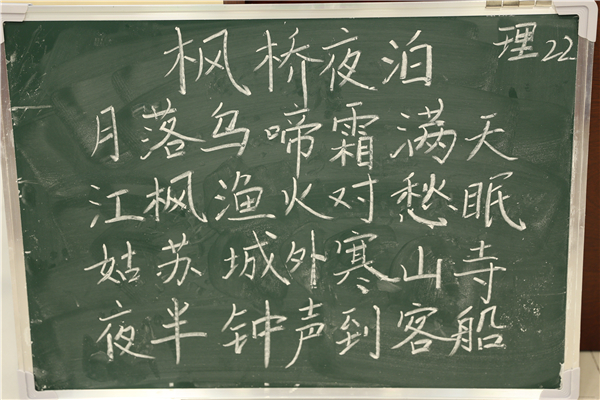 枫桥夜泊
理22
月落乌啼霜满天
江枫渔火对愁眠
姑苏城外寒山寺
夜半钟声到客船